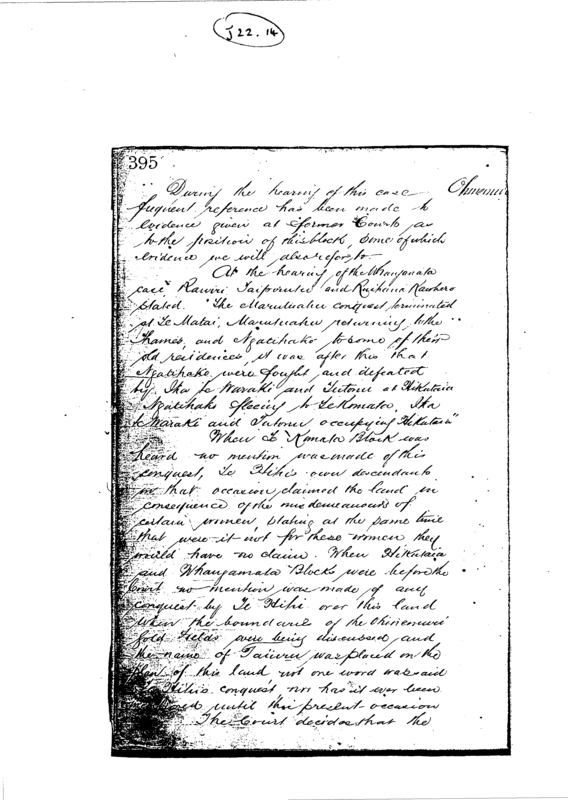 J 22.14
395
During the hearing of this case
frequent reference has been made to
evidence given at former Courts as
to the position of this block, some of which
evidence we will also refer to
At the hearing of the Whangamata
case Rawiri and
stated. "The Marutuahu conquest terminated
at Te Matai, Marutuahu returning to the
Thames, and Ngatihako to some of their
old residences, it was after this that
Ngatihako were fought and defeated
by Ika te Waraki and at Hikutaia
Ngatihako fleeing to Te Komata, Ika
te Waraki and occupying Hikutaia"
When Te Komata Block was
heard no mention was made of this
conquest, Te Hihi's own descendants
on that occasion claimed the land in
consequence of the misdemeanours of
certain women, stating at the same time
that were it not for these women they
would have no claim. When Hikutaia
and Whangamata Blocks were before the
Court no mention was made of any
conquest by Te Hihi over this land
When the boundaries of the Ohinemuri
Gold Fields were being discussed and
the name of Taiuru was placed on the
plan of this land not one word was said
Hihi's conquest nor has it ever been
until this present occasion
The Court decides that the